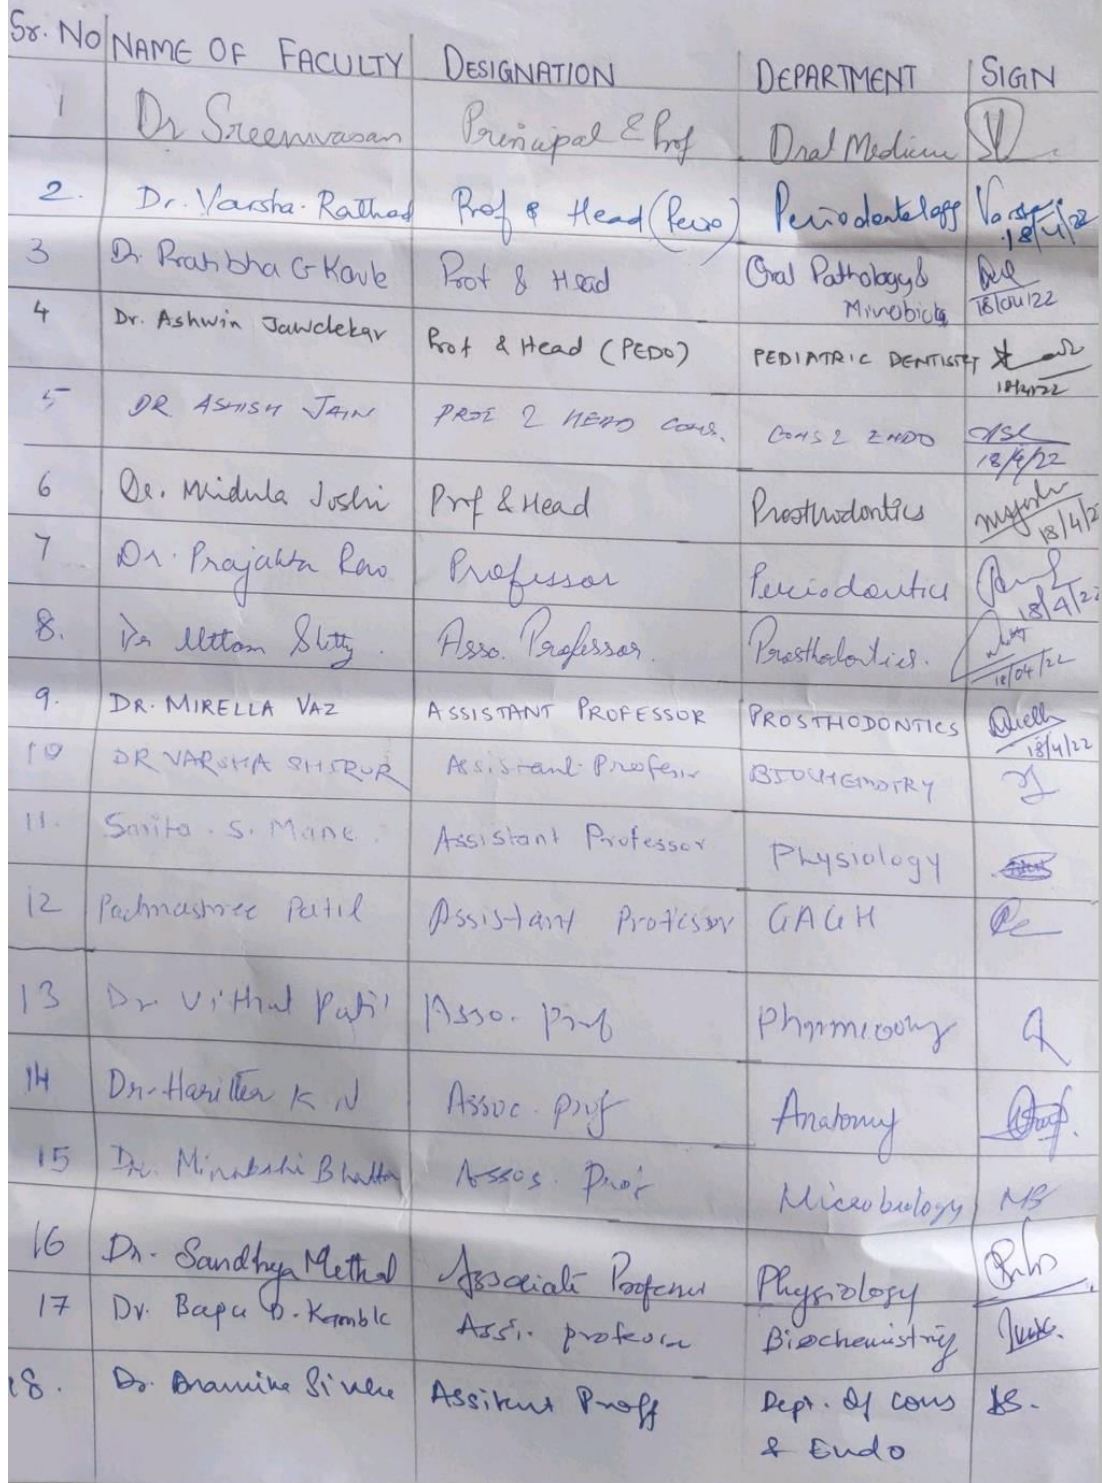 Sr. No NAME OF FACULTY DESIGNATION DEPARTMENT SIGN
1 Dr Sreenivasan Principal & Prof Oral Medicine
2. Dr. Varsha Rathod Prof & Head (Perio) Periodontology Varsha
18/4/22
3 Dr Pratibha G Kavle Prof & Head Oral Pathology &
Microbiology 18/04/22
4 Dr. Ashwin Jawdekar Prof & Head (PEDO) PEDIATRIC DENTISTRY
18/4/22
5 DR ASHISH JAIN PROF & HEAD CONS. CONS & ENDO
18/4/22
6 Dr. Mridula Joshi Prf & Head Prosthodontics
18/4/22
7 Dr. Prajakta Rao Professor Periodontics
18/4/22
8. Dr Uttam Shetty. Asso. Professor. Prosthodontics.
18/04/22
9. DR. MIRELLA VAZ ASSISTANT PROFESSOR PROSTHODONTICS
18/4/22
10 DR VARSHA SHIRUR Assistant Professor BIOCHEMISTRY
11. Sarita . S. Mane. Assistant Professor Physiology
12 Padmashree Patil Assistant Professor
13 Dr Vithal Patil Asso. Prof
14 Dr. K N Assoc. Prof Anatomy
15 Dr. Minakshi Bhatta Assos. Prof Microbiology MB
16 Dr. Sandhya Methal Associate Professor Physiology
17 Dr. Bapu D. Kamble Assi. professor Biochemistry
18. Dr. Assitent Proff Dept. Of Cons
& Endo